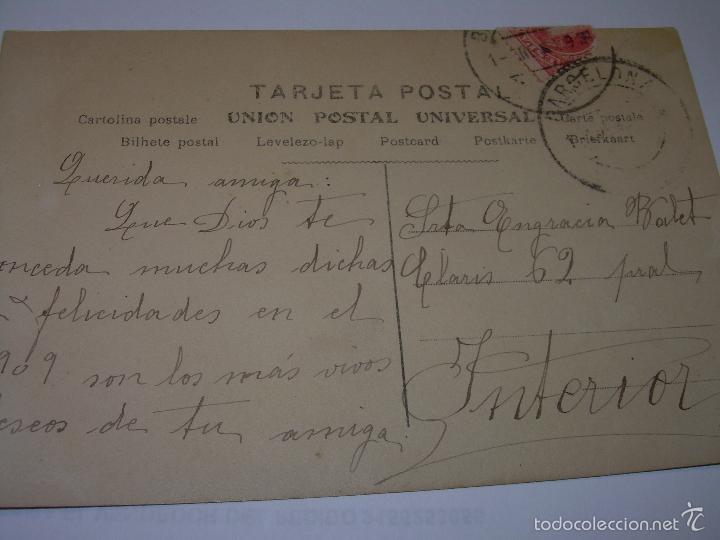 TARJETA POSTAL
Cartolina postale UNION POSTAL UNIVERSAL Carte postale
Bilhete postal Levelezo-lap Postcard Postkarte Briefkaart
BARCELONA
Querida amiga:
Que Dios te
onceda muchas dichas
y felicidades en el
909 son los más vivos
deseos de tu amiga
Srta Engracia Valet
Claris 62 pral
Interior
todocoleccion.net